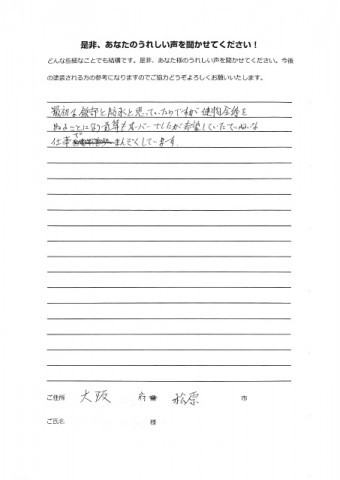 是非、あなたのうれしい声を聞かせてください！
どんな些細なことでも結構です。是非、あなた様のうれしい声を聞かせてください。今後
の塗装される方の参考になりますのでご協力どうぞよろしくお願いいたします。
最初は 部と防水と思っていたので が建物全体を
ぬることになり予算もオーバーでしたが希望していたていねいな
仕事で まんぞくしています。
ご住所 大阪 府 松原 市
ご氏名 様